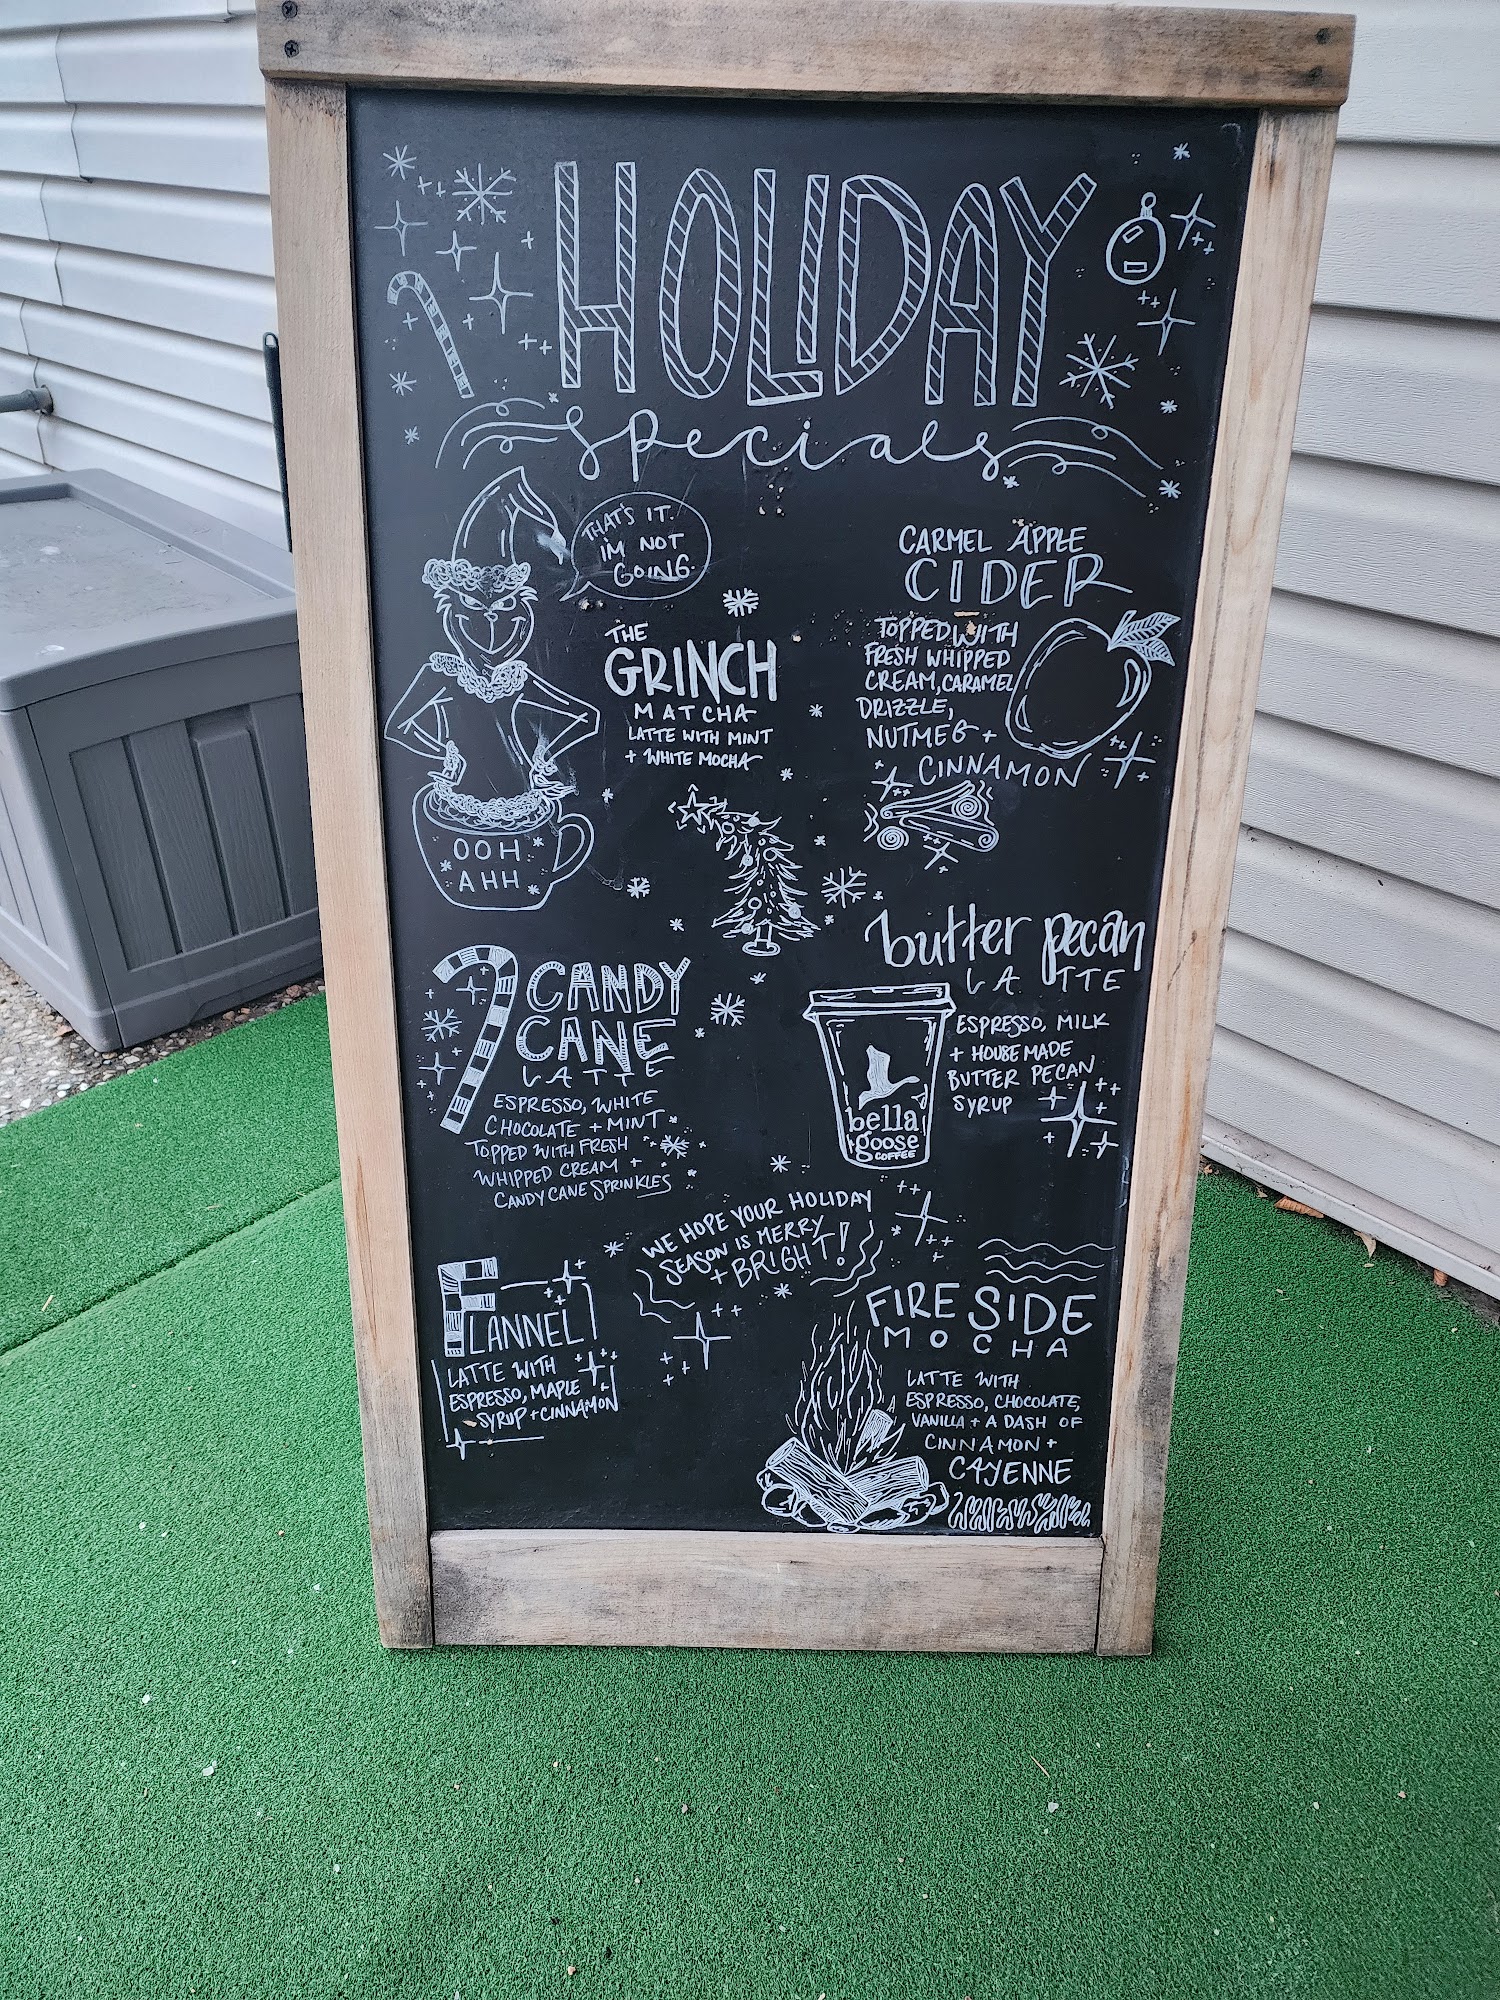 HOLIDAY
specials
THAT'S IT.
IM NOT
GOING.
THE
GRINCH
MATCHA
LATTE WITH MINT
+ WHITE MOCHA
OOH
AHH
CARMEL APPLE
CIDER
TOPPED WITH
FRESH WHIPPED
CREAM, CARAMEL
DRIZZLE,
NUTMEG +
CINNAMON
CANDY
CANE
LATTE
ESPRESSO, WHITE
CHOCOLATE + MINT
TOPPED WITH FRESH
WHIPPED CREAM +
CANDY CANE SPRINKLES
butter pecan
LATTE
ESPRESSO, MILK
+ HOUSE MADE
BUTTER PECAN
SYRUP
bella
goose
COFFEE
WE HOPE YOUR HOLIDAY
SEASON IS MERRY
+ BRIGHT!
FLANNEL
LATTE WITH
ESPRESSO, MAPLE
SYRUP + CINNAMON
FIRE SIDE
MOCHA
LATTE WITH
ESPRESSO, CHOCOLATE,
VANILLA + A DASH OF
CINNAMON +
CAYENNE